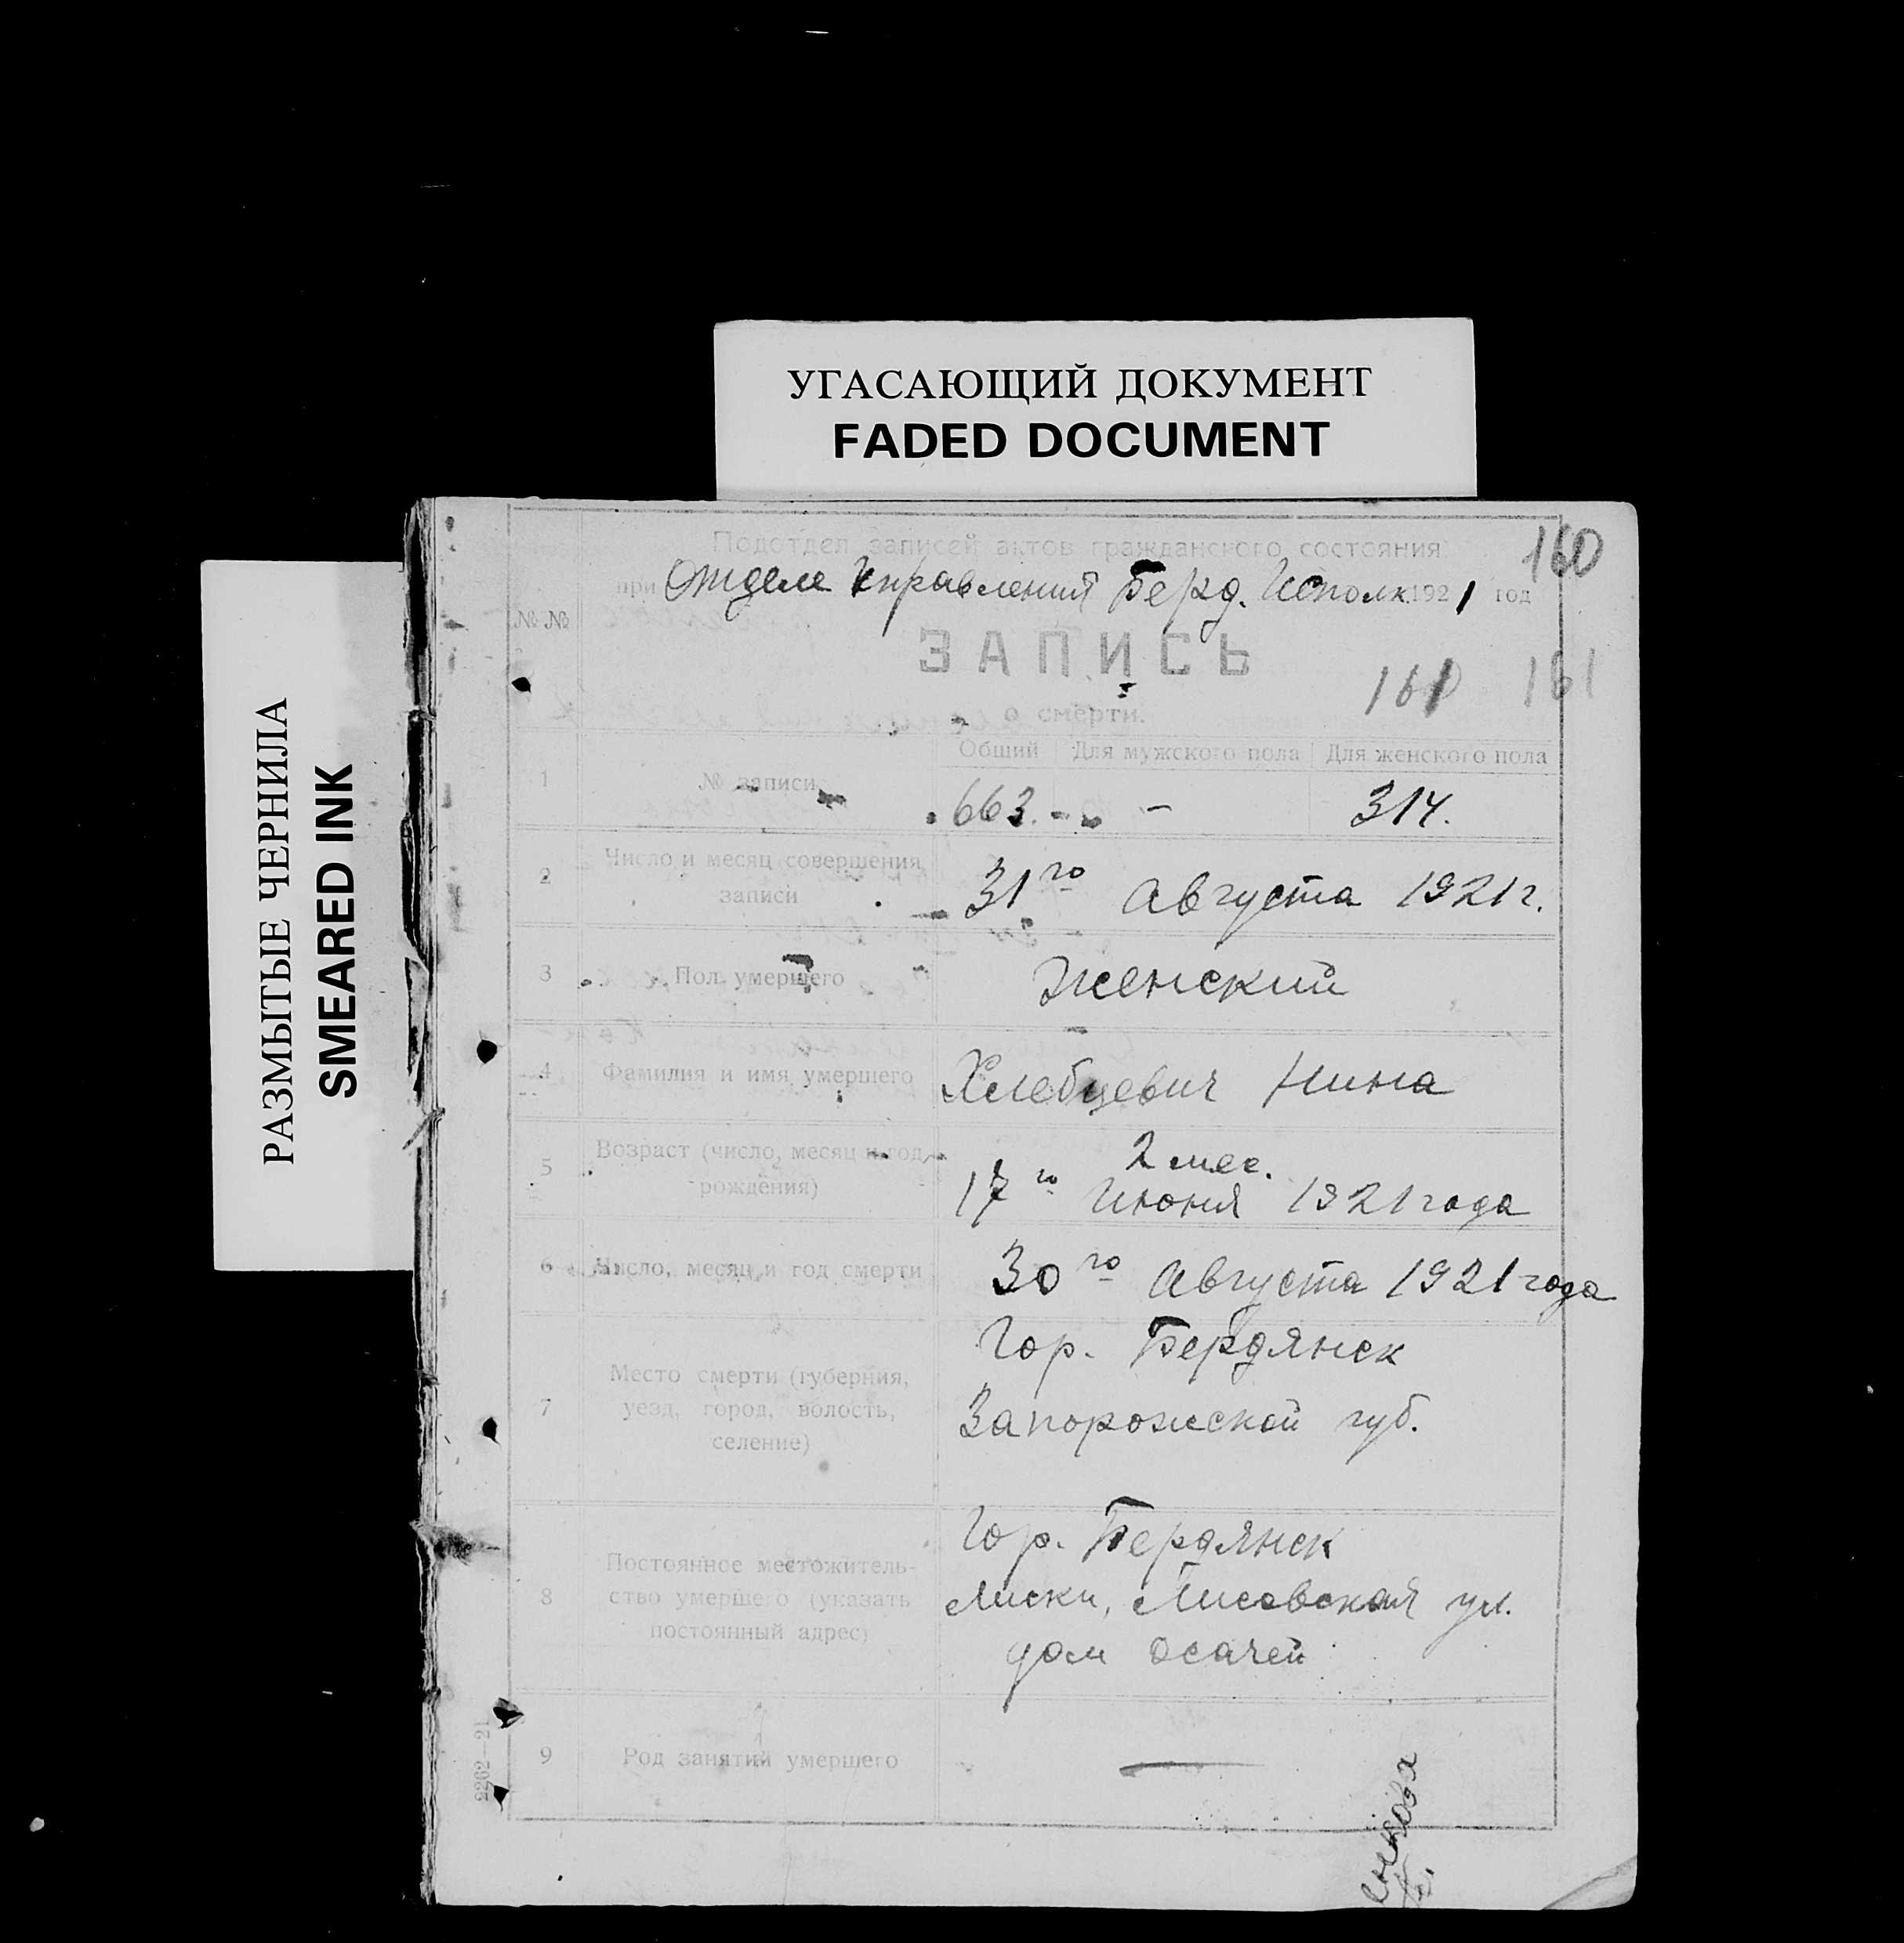 УГАСАЮЩИЙ ДОКУМЕНТ
FADED DOCUMENT
РАЗМЫТЫЕ ЧЕРНИЛА
SMEARED INK
160
Подотдел записей актов гражданского состояния
при Отделе Управления Берд. Исполк. 1921 год
№ №
ЗАПИСЬ
о смерти.
161 161
Общий Для мужского пола Для женского пола
1 № записи 663. - - 314.
2 Число и месяц совершения
записи
31го Августа 1921 г.
3 Пол умершего Женский
4 Фамилия и имя умершего Хлебцевич Нина
5 Возраст (число, месяц и год
рождения)
2 мес.
17го Июня 1921 года
6 Число, месяц и год смерти 30го Августа 1921 года
7 Место смерти (губерния,
уезд, город, волость,
селение)
Гор. Бердянск
Запорожской губ.
8 Постоянное местожитель-
ство умершего (указать
постоянный адрес)
Гор. Бердянск
Лиски, Лисовская ул.
дом Осачей
9 Род занятий умершего —
2262—21